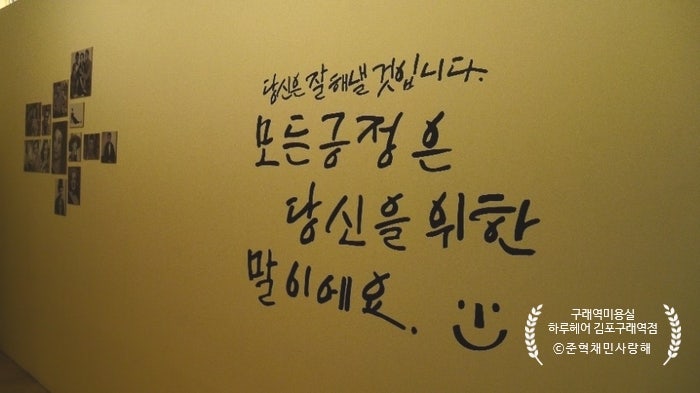 당신은 잘 해낼 것입니다.
모든 긍정은
당신을 위한
말이에요.
구래역미용실
하루헤어 김포구래역점
ⓒ준혁채민사랑해